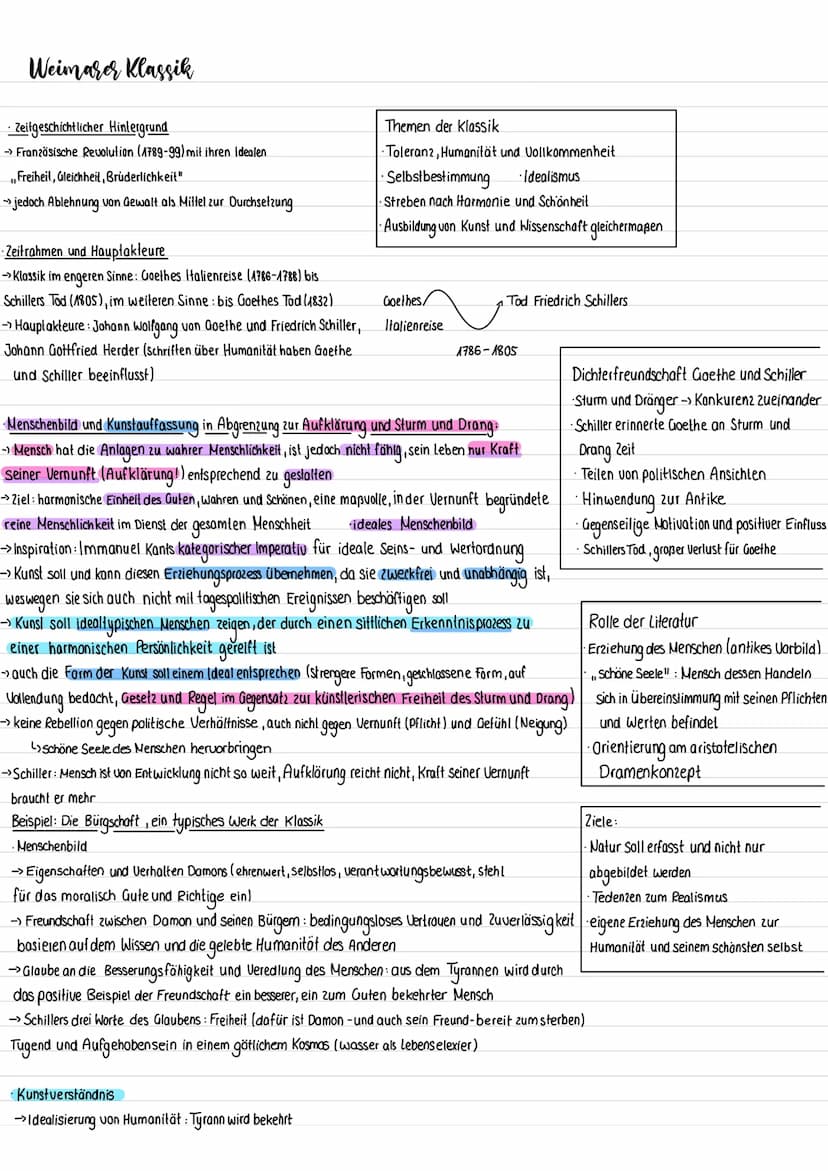 Weimarer Klassik
· Zeitgeschichtlicher Hintergrund
→ Französische Revolution (1789-99) mit ihren Idealen
„Freiheit, Gleichheit, Brüderlichkeit"
→ jedoch Ablehnung von Gewalt als Mittel zur Durchsetzung
Themen der Klassik
· Toleranz, Humanität und Vollkommenheit
· Selbstbestimmung · Idealismus
· Streben nach Harmonie und Schönheit
· Ausbildung von Kunst und Wissenschaft gleichermaßen
· Zeitrahmen und Hauptakteure
→ Klassik im engeren Sinne: Goethes Italienreise (1786-1788) bis
Schillers Tod (1805), im weiteren Sinne: bis Goethes Tod (1832)
→ Hauptakteure: Johann Wolfgang von Goethe und Friedrich Schiller,
Johann Gottfried Herder (Schriften über Humanität haben Goethe
und Schiller beeinflusst)
Goethes
Italienreise
Tod Friedrich Schillers
1786-1805
Dichterfreundschaft Goethe und Schiller
· Sturm und Dränger → Konkurenz zueinander
· Schiller erinnerte Goethe an Sturm und
Drang Zeit
· Teilen von politischen Ansichten
· Hinwendung zur Antike
· Gegenseilige Motivation und positiver Einfluss
· Schillers Tod, großer Verlust für Goethe
· Menschenbild und Kunstauffassung in Abgrenzung zur Aufklärung und Sturm und Drang:
→ Mensch hat die Anlagen zu wahrer Menschlichkeit, ist jedoch nicht fähig, sein leben nur Kraft
seiner Vernunft (Aufklärung!) entsprechend zu gestalten
→ Ziel: harmonische Einheit des Guten, Wahren und Schönen, eine maßvolle, in der Vernunft begründete
reine Menschlichkeit im Dienst der gesamten Menschheit · ideales Menschenbild
→ Inspiration: Immanuel Kants kategorischer Imperativ für ideale Seins- und Wertordnung
→ Kunst soll und kann diesen Erziehungsprozess übernehmen, da sie zweckfrei und unabhängig ist,
weswegen sie sich auch nicht mit tagespolitischen Ereignissen beschäftigen soll
→ Kunst soll idealtypischen Menschen zeigen, der durch einen sittlichen Erkenntnisprozess zu
einer harmonischen Persönlichkeit gereift ist
→ auch die Form der Kunst soll einem Ideal entsprechen (strengere Formen, geschlossene Form, auf
Vollendung bedacht, Gesetz und Regel im Gegensatz zur künstlerischen Freiheit des Sturm und Drang)
→ keine Rebellion gegen politische Verhältnisse, auch nicht gegen Vernunft (Pflicht) und Gefühl (Neigung)
↳ schöne Seele des Menschen hervorbringen
→ Schiller: Mensch ist von Entwicklung nicht so weit, Aufklärung reicht nicht, Kraft seiner Vernunft
braucht er mehr
Rolle der Literatur
· Erziehung des Menschen (antikes Vorbild)
· „schöne Seele": Mensch dessen Handeln
sich in Übereinstimmung mit seinen Pflichten
und Werten befindet
· Orientierung am aristotelischen
Dramenkonzept
Beispiel: Die Bürgschaft, ein typisches Werk der Klassik
· Menschenbild
→ Eigenschaften und Verhalten Damons (ehrenwert, selbstlos, verantwortungsbewusst, steht
für das moralisch Gute und Richtige ein)
→ Freundschaft zwischen Damon und seinen Bürgern: bedingungsloses Vertrauen und Zuverlässigkeit
basieren auf dem Wissen und die gelebte Humanität des Anderen
→ Glaube an die Besserungsfähigkeit und Veredlung des Menschen: aus dem Tyrannen wird durch
das positive Beispiel der Freundschaft ein besserer, ein zum Guten bekehrter Mensch
→ Schillers drei Worte des Glaubens: Freiheit (dafür ist Damon - und auch sein Freund - bereit zum sterben)
Tugend und Aufgehobensein in einem götlichem Kosmos (Wasser als Lebenselexier)
Ziele:
· Natur soll erfasst und nicht nur
abgebildet werden
· Tedenzen zum Realismus
· eigene Erziehung des Menschen zur
Humanität und seinem schönsten selbst
· Kunstverständnis
→ Idealisierung von Humanität: Tyrann wird bekehrt